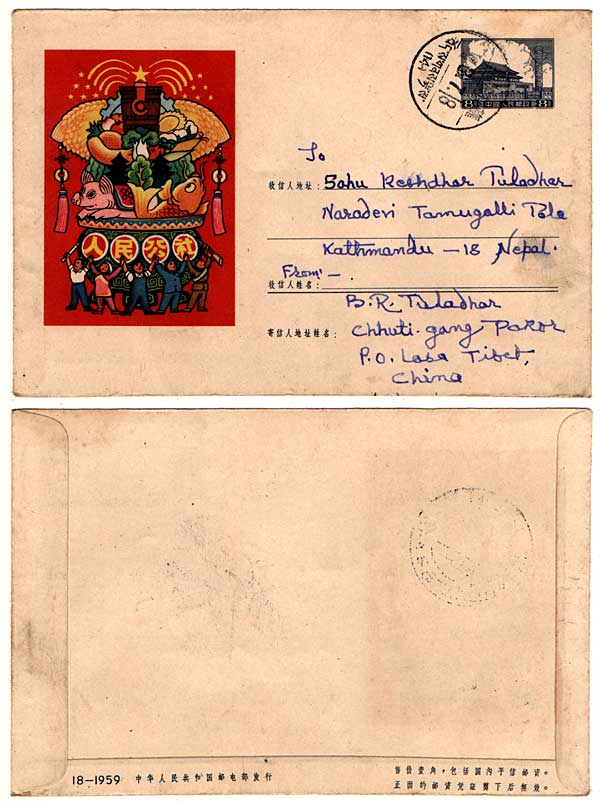 人民公社
8 中国人民邮政 8
To
收信人地址：Sahu Keshdhar Tuladhar
Naradevi Tamugalli Tole
Kathmandu - 18 Nepal.
From -
收信人姓名：
B.R. Tuladhar
寄信人地址姓名：Chhuti-gang Pokor
P.O. Lasa Tibet,
China
18-1959 中华人民共和国邮电部发行
售价壹角，包括国内平信邮资。
正面的邮资凭证剪下后无效。